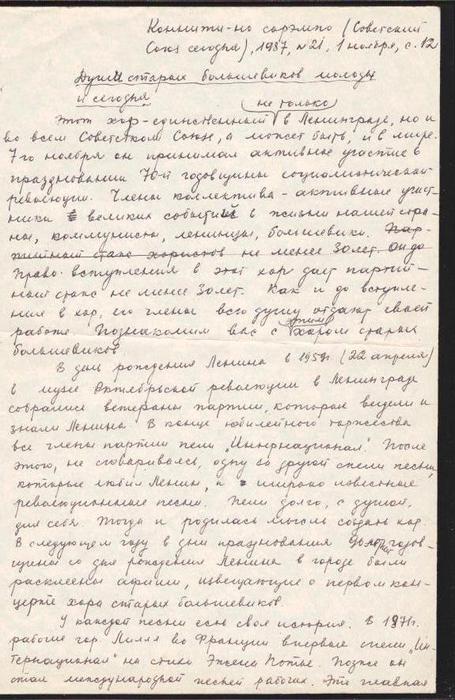 Коннити-но сорэмпо (Советский
Союз сегодня), 1987, №21, 1 ноября, с. 12
Души старых большевиков молоды
и сегодня
не только
Этот хор - единственный в Ленинграде, но и
во всем Советском Союзе, а может быть, и в мире.
7-го ноября он принимал активное участие в
праздновании 70-й годовщины социалистической
революции. Члены коллектива - активные участ-
ники великих событий в жизни нашей стра-
ны, коммунисты, ленинцы, большевики. Пар-
тийный стаж хористов не менее 30 лет.
Право вступления в этот хор дает партий-
ный стаж не менее 30 лет. Как и до вступле-
ния в хор, его члены всю душу отдают своей
работе. Познакомим вас с хором старых
этим
большевиков
В день рождения Ленина в 1959г. (22 апреля)
в музее Октябрьской революции в Ленинграде
собрались ветераны партии, которые видели и
знали Ленина. В конце юбилейного торжества
все члены партии пели „Интернационал". После
этого, не сговариваясь, одну за другой спели песни,
которые любил Ленин, и широко известные
революционные песни. Пели долго, с душой,
для себя. Тогда и родилась мысль создать хор.
В следующем году в дни празднования 90-летия годов-
щины со дня рождения Ленина в городе были
расклеены афиши, извещающие о первом кон-
церте хора старых большевиков.
У каждой песни есть своя история. В 1871г.
рабочие гор. Лилля во Франции впервые спели „Ин-
тернационал" на стихи Эжена Потье. Позже он
стал международной песней рабочих. Эта главная